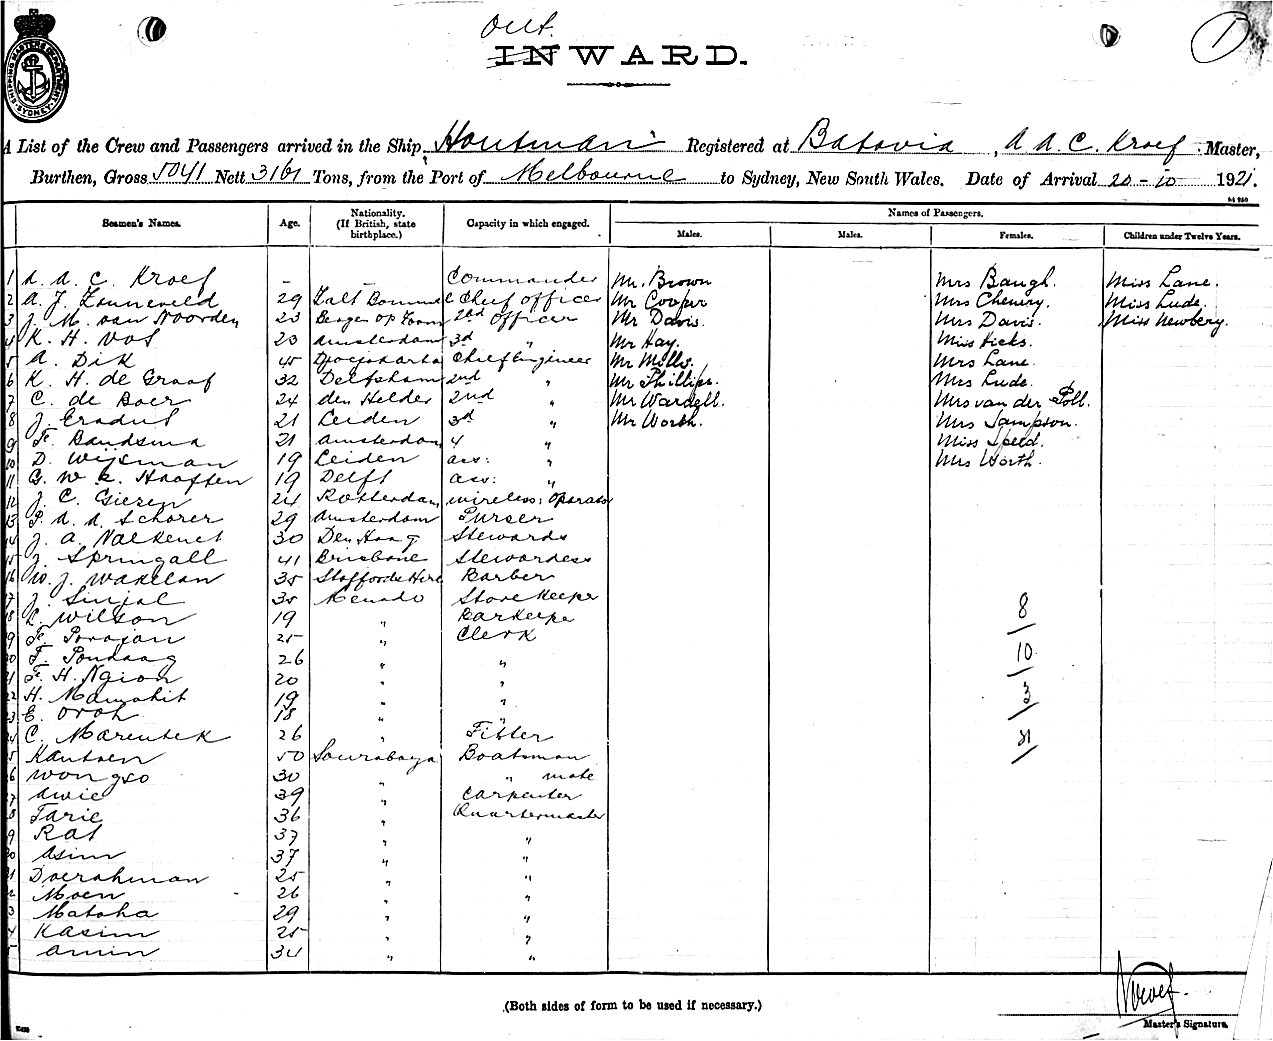 out.
INWARD.
1
A List of the Crew and Passengers arrived in the Ship, Houtman Registered at Batavia, A. A. C. Kroef Master,
Burthen, Gross 5041 Nett 3161 Tons, from the Port of Melbourne to Sydney, New South Wales. Date of Arrival 20-10 1921.
Names of Passengers.
Seamen's Names. Age. Nationality. (If British, state birthplace.) Capacity in which engaged. Males. Males. Females. Children under Twelve Years.
1 A. A. C. Kroef - - Commander Mr. Brown Mrs Baugh. Miss Lane.
2 A. J. Zonneveld 29 Zalt Bommel Chief officer Mr Cooper Mrs Cheniry. Miss Lude.
3 J. M. van Noorden 23 Bergen op Zoom 2nd officer Mr Davis. Mrs Davis. Miss Newbery.
4 K. H. Vos 23 Amsterdam 3rd " Mr Hay. Miss Hicks.
5 A. Dik 45 Djocjakarta Chief Engineer Mr Mills. Mrs Lane.
6 K. H. de Graaf 32 Delfshaven 2nd " Mr Phillips. Mrs Lude.
7 C. de Boer 24 den Helder 2nd " Mr Wardell. Mrs van der Poll.
8 J. Eradus 21 Leiden 3d " Mr Worth. Mrs Sampson.
9 Fr. Bandsma 21 Amsterdam 4 " Miss Speed.
10 D. Wijsman 19 Leiden ass: " Mrs Worth.
11 G. W. v. Haaften 19 Delft ass: "
12 J. C. Gieren 24 Rotterdam wireless: Operator
13 P. A. A. Schorer 29 Amsterdam Purser
14 J. A. Valkenet 30 Den Haag Stewards
15 J. Springall 41 Brisbane Stewardess
16 W. J. Wakelan 35 Staffordshire Barber
17 J. Sinjal 35 Menado Store Keeper
18 L. Wilson 19 " Barkeeper 8
19 Fr. Porajan 25 " Clerk
20 F. Pondaag 26 " " 10
21 Fr. H. Ngion 20 " "
22 H. Mamahit 19 " " 3
23 E. Oroh 18 " "
24 C. Marentek 26 " Fitter 21
25 Kantoen 50 Sourabaya Boatsman
26 Wongso 30 " " mate
27 Awie 39 " Carpenter
28 Tarie 36 " Quartermaster
29 Rat 37 " "
30 Asim 37 " "
31 Doerahman 25 " "
32 Moen 26 " "
33 Matoha 29 " "
34 Kasim 25 " "
35 Amin 34 " "
(Both sides of form to be used if necessary.)
Kroef.
Master's Signature.